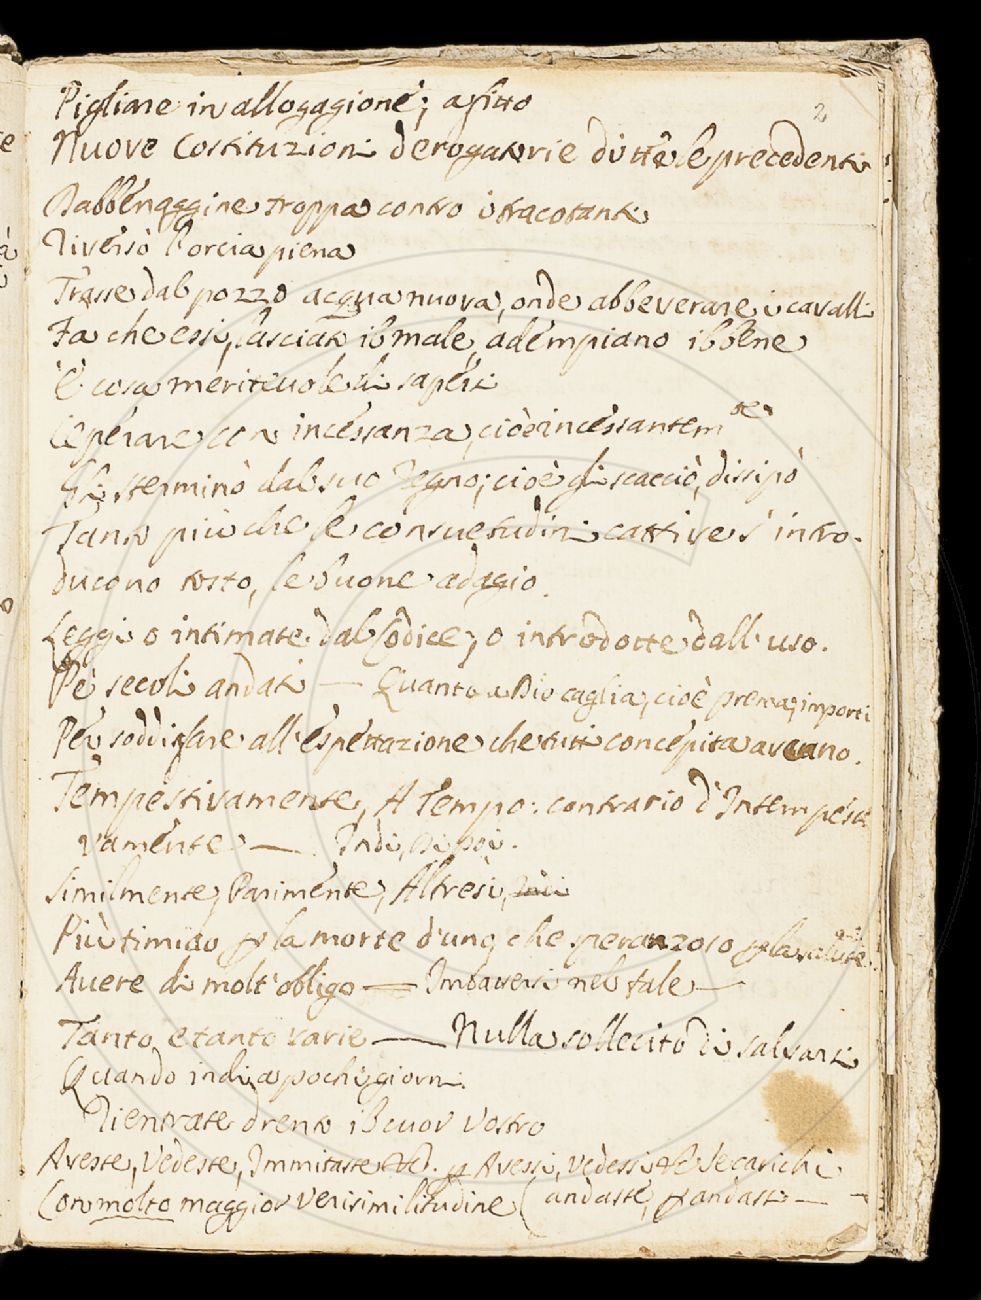 2
Pigliare in allogagione; afitto
Nuove Costituzioni derogatorie di tte le precedenti
Dabbenaggine troppa contro i tracotanti
Riversò l'orcia piena
Trasse dal pozzo acqua nuova, onde abbeverare i cavalli
Fa che essi, lasciati il male, adempiano il bene
È cosa meritevole di sapersi
con incessanza, cioè incessantem.te
Gli sterminò dal suo Regno; cioè gli scacciò, dissipò
Tanto più che le consuetudini cattive s' intro-
ducono tosto, le buone adagio.
Leggi o intimate dal Codice, o introdotte dall' uso.
Pe' secoli andati — Quanto a Dio caglia, cioè prema, importi
Per soddisfare all' espettazione che tutti concepita aveano.
Tempestivamente, A Tempo: contrario d' Intempesti
vamente — Indi, Di poi.
Similmente, Parimente, Altresì,
Più timido p la morte d'uno, che speranzoso p la salute
Avere di molt' obligo — Imbattersi nel tale —
Tanto, e tanto varie — Nulla sollecito di salvarsi
Quando indi a pochi giorni
Rientrate drento il cuor vostro
Aveste, Vedeste, Immitaste &c. p Avessi, vedessi &c Se carichi
Con molto maggior verisimilitudine ( andaste, p andasti —